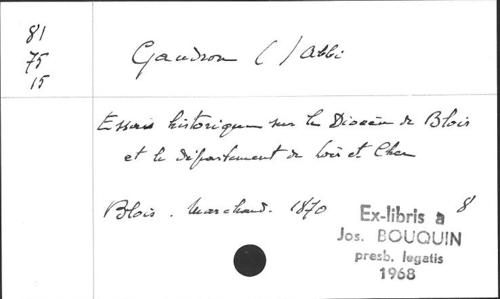 81
75
15
Gaudron ( ) Abbé
Essais historiques sur le Diocèse de Blois
et le département de Loir et Cher
Blois. Marchand. 1870 8
Ex-libris a
Jos. BOUQUIN
presb. legatis
1968